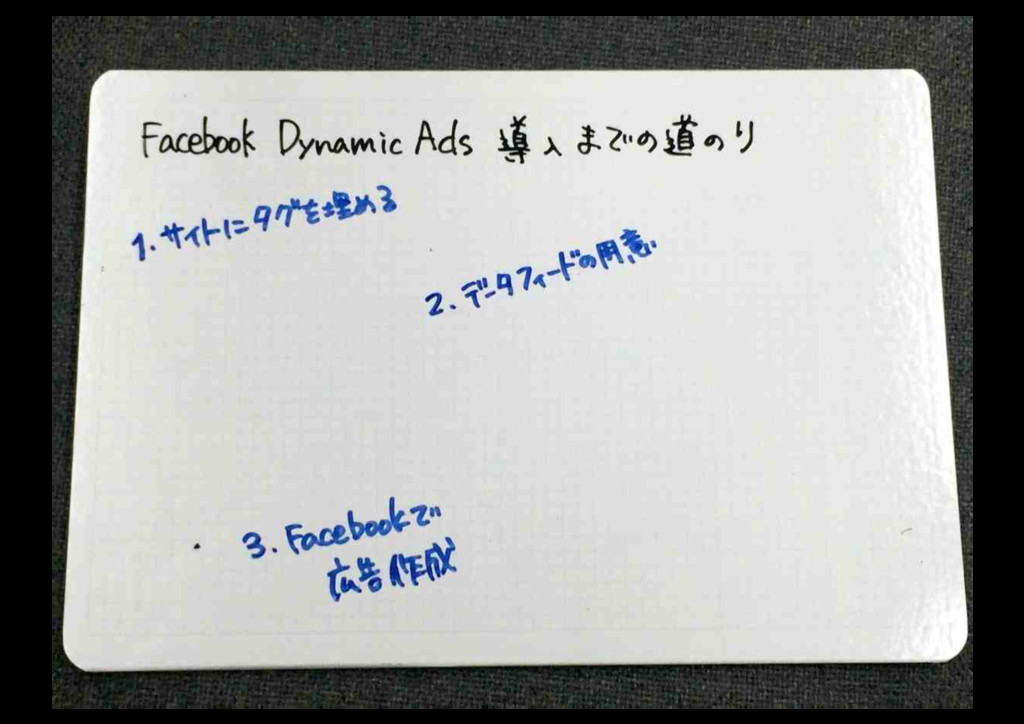 Facebook Dynamic Ads 導入までの道のり
1. サイトにタグを埋める
2. データフィードの用意
3. Facebookで
広告作成